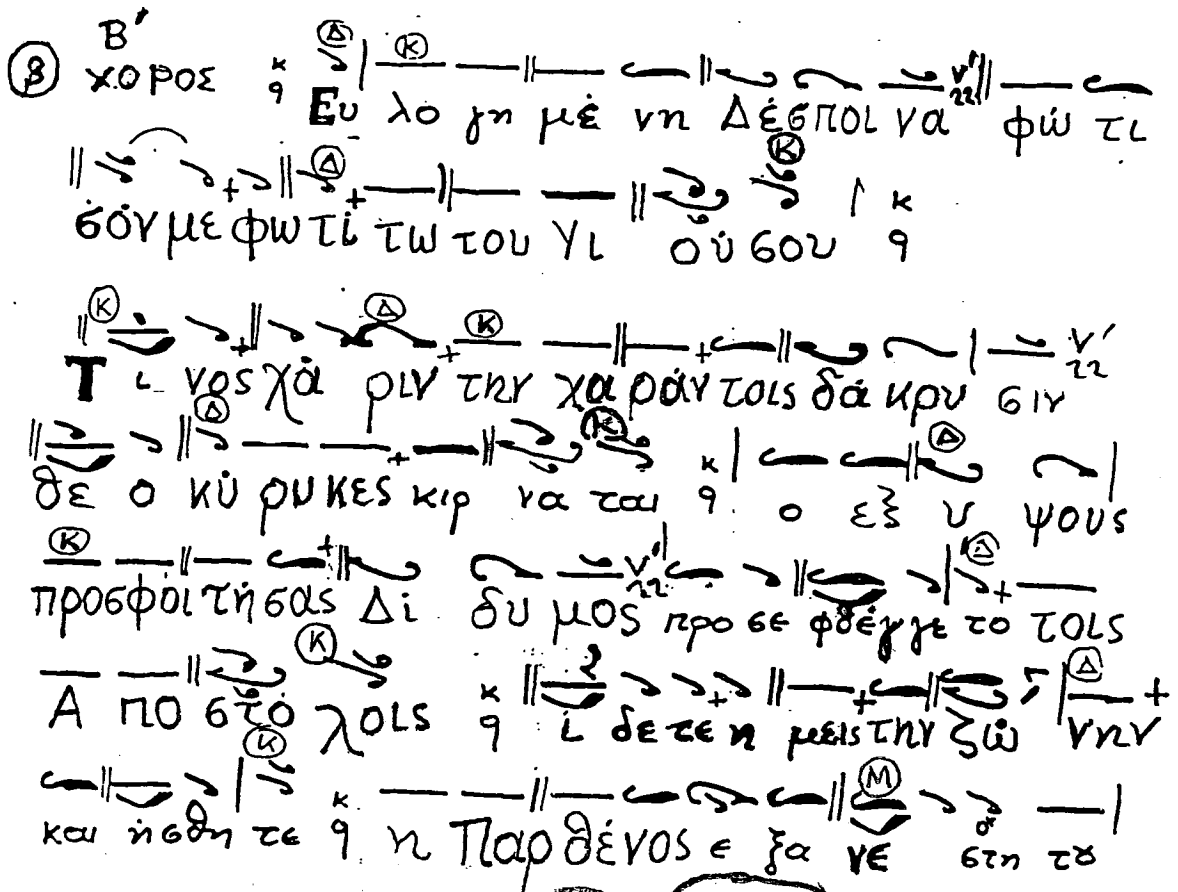 Β΄
β χορος κ q Ευ λο γη μέ νη Δέσποι να φώ τι
σόν με φω τί τω του Υι ού σου κ q
Τ ι νος χά ριν την χα ράν τοις δά κρυ σιν
θε ο κύ ρυ κες κιρ να ται κ q ο εξ υ ψους
προσφοι τή σας Δί δυ μος προ σε φθέγ γε το τοις
Α πο στό λοις κ q ί δε τε η μεις την ζώ νην
και ήσθη τε κ q η Παρθένος ε ξα νε στη του